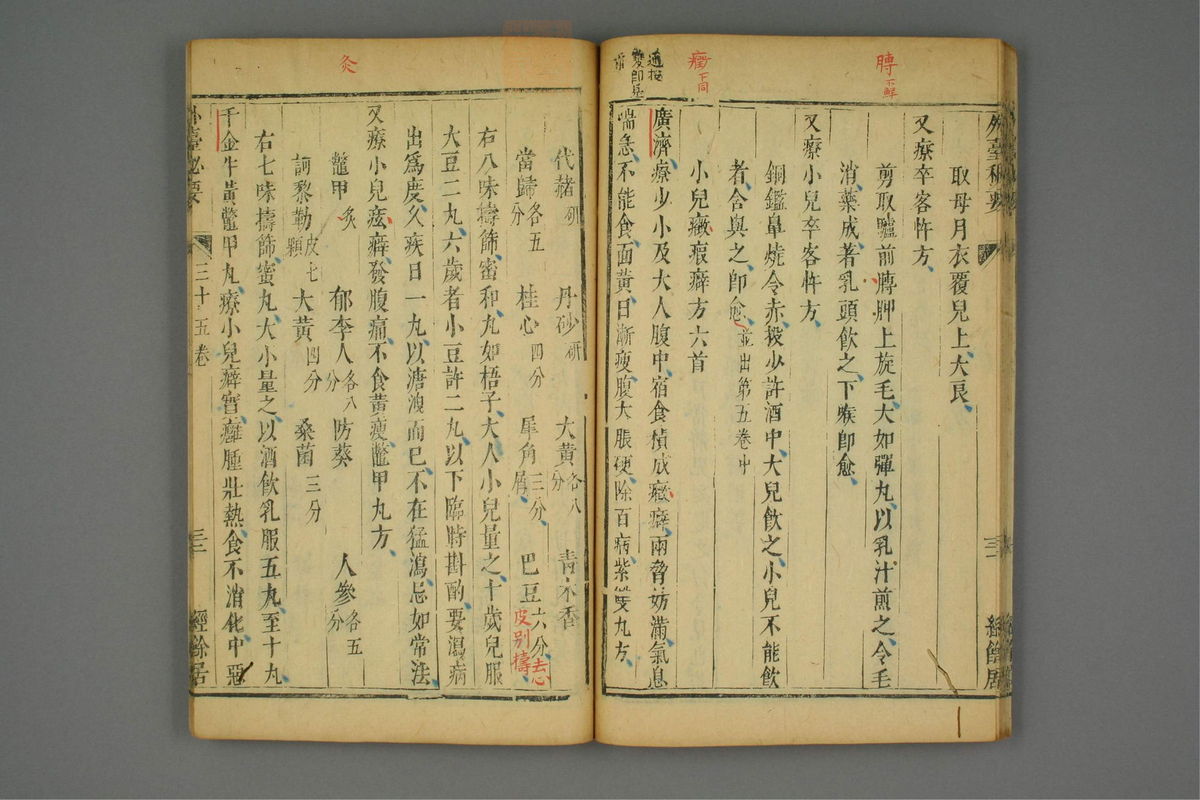 膞下解
癥下同
取母月衣覆兒上大良
又療卒客忤方
剪取驢前膊胛上旋毛大如彈丸以乳汁煎之令毛
消藥成著乳頭飲之下喉即愈
又療小兒卒客忤方
銅鑑鼻燒令赤投少許酒中大兒飲之小兒不能飲
者含與之即愈並出第五卷中
小兒癥瘕癖方六首
廣濟療少小及大人腹中宿食積成癥癖兩脅妨滿氣息
喘急不能食面黃日漸瘦腹大脹硬除百病紫雙丸方
代赭研 丹砂研 大黃各八分 青木香
當歸各五分 桂心四分 犀角三分屑 巴豆六分去皮別擣
右八味擣篩蜜和丸如梧子大人小兒量之十歲兒服
大豆二丸六歲者小豆許二丸以下臨時斟酌要瀉病
出為度久疾日一丸以溏洩而已不在猛瀉忌如常法
又療小兒痃癖發腹痛不食黃瘦鱉甲丸方
鼈甲炙 郁李人各八分 防葵 人參各五分
訶黎勒皮七顆 大黃四分 桑菌三分
右七味擣篩蜜丸大小量之以酒飲乳服五丸至十丸
千金牛黃鼈甲丸療小兒癖實癰腫壯熱食不消化中惡
外臺秘要 三十五卷 經餘居
炙